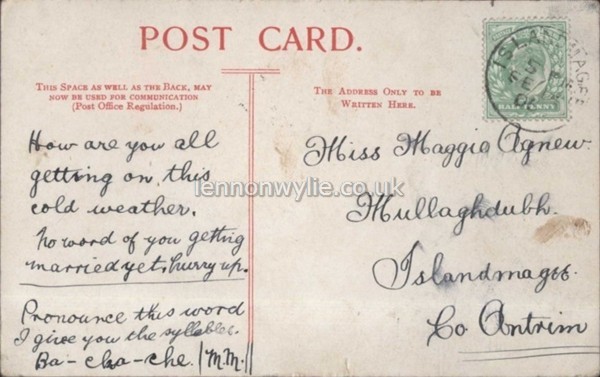 POST CARD.
THIS SPACE AS WELL AS THE BACK, MAY
NOW BE USED FOR COMMUNICATION
(Post Office Regulation.)
THE ADDRESS ONLY TO BE
WRITTEN HERE.
ISLANDMAGEE
HALFPENNY
How are you all
getting on, this
cold weather.
No word of you getting
married yet, hurry up.
Pronounce this word
I give you the syllables.
Ba-cha-che. M.M.
Miss Maggie Agnew.
Mullaghdubh.
Islandmagee.
Co Antrim
lennonwylie.co.uk